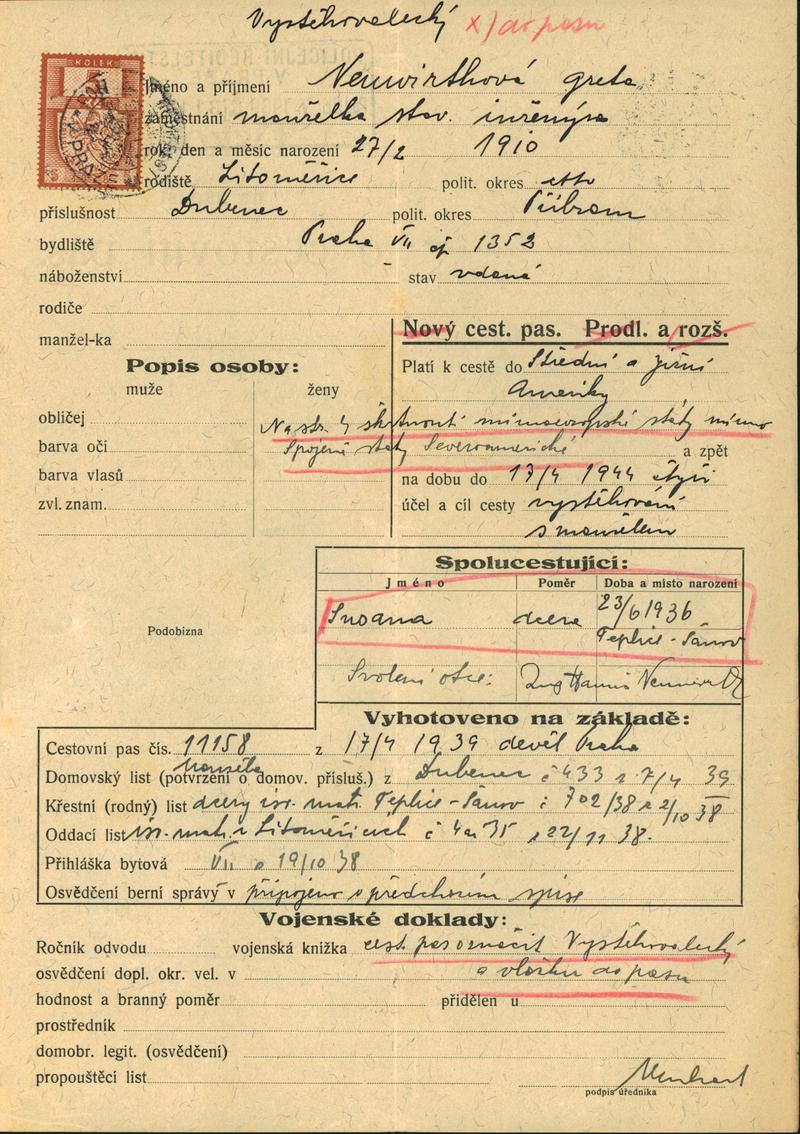 Vystěhovalecký x) do pasu
KOLEK
Jméno a příjmení Neuwirthová Greta
zaměstnání manželka stav. inženýra
rok, den a měsíc narození 27/2 1910
rodiště Litoměřice polit. okres etto
příslušnost Dubenec polit. okres Příbram
bydliště Praha VII čp 1352
náboženství - stav vdaná
rodiče
manžel-ka
Nový cest. pas. Prodl. a rozš.
Popis osoby:
Platí k cestě do Střední a Jižní
muže ženy
Ameriky
obličej
Na str. 4 škrtnouti mimoevropské státy mimo
barva očí
Spojené státy Severoamerické a zpět
barva vlasů
na dobu do 17/4 1944 čtyři
zvl. znam.
účel a cíl cesty vystěhování
s manželem
Spolucestující:
Jméno Poměr Doba a místo narození
Susana dcera 23/6 1936
Teplice-Šanov
Podobizna
Svolení otce: Ing Hanuš Neuwirth
Vyhotoveno na základě:
Cestovní pas čís. 11158 z 17/4 1939 devět Praha
manžela
Domovský list (potvrzení o domov. přísluš.) z Dubenec č 433 z 7/4 39
Křestní (rodný) list dcery isr. mat. Teplice-Šanov č 702/38 z 2/10 38
Oddací list isr. mat. v Litoměřicích č 4 a 35 z 22/11 38.
Přihláška bytová VII z 19/10 38
Osvědčení berní správy v připojeno v předchozím spise
Vojenské doklady:
Ročník odvodu vojenská knížka cest. pas označit Vystěhovalecký
osvědčení dopl. okr. vel. v a vložku do pasu
hodnost a branný poměr přidělen u
prostředník
domobr. legit. (osvědčení)
propouštěcí list
podpis úředníka